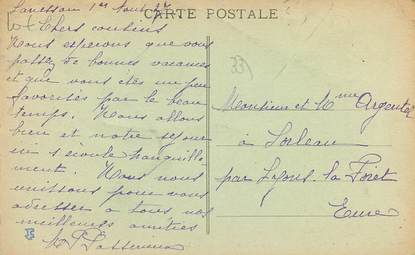 CARTE POSTALE
1er Août
Chers cousins
Nous esperons que vous
passez de bonnes vacances
et que vous etes un peu
favorisés par le beau
temps. Nous allons
bien et notre sejour
ici s'écoule tranquille
ment. Nous nous
unissons pour vous
adresser à tous nos
meilleures amitiés
33
Monsieur et Mme Argentier
à Lorleau
par Lyons-la-Forêt
Eure